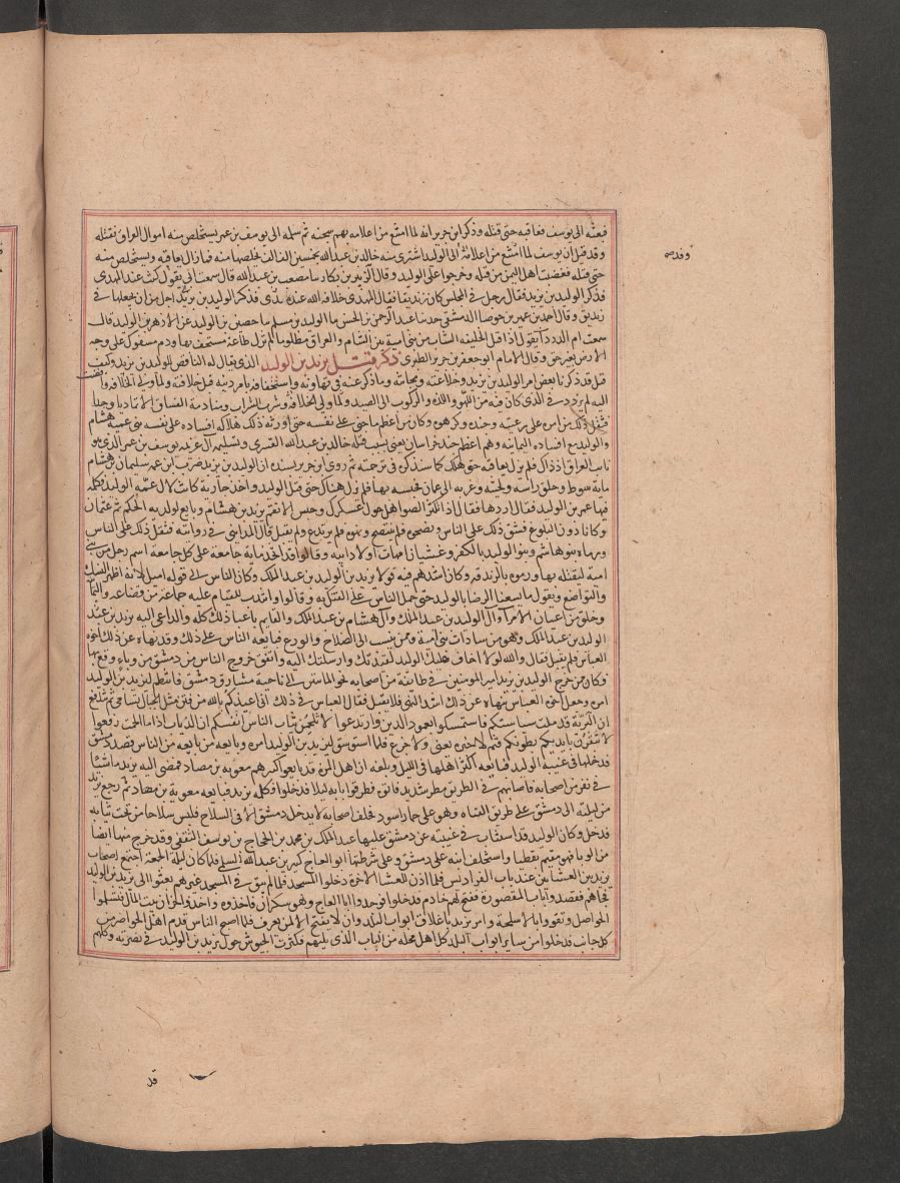 فبعثه الى يوسف فعاقبه حتى قتله وذكر ابن جرير انه لما امتنع من اعلامه بهم سجنه ثم سلمه الى يوسف بن عمر يستخلص منه اموال العراق فقتله
وقد قيل ان يوسف لما امتنع من اعلامه الوليد اشترى منه خالد بن عبد الله بخمسين الف الف يخلصها منه فما زال يعاقبه ويستخلص منه
وقدسه
حتى قتله فغضب اهل اليمن من قتله وخرجوا على الوليد وقال الزبير بن بكار ثنا مصعب بن عبد الله قال سمعت ابى يقول كنت عند المهدى
فذكر الوليد بن يزيد فقال رجل فى المجلس كان زنديقا فقال المهدى خلافة الله عنده فذكر الوليد بن يزيد اجل من ان يجعلها فى
زنديق وقال احمد بن عمير بن حوصا الدمشقى حدثنا عبد الرحمن بن الحسن ثنا الوليد بن مسلم ثنا حصين بن الوليد عن الازهر بن الوليد قال
سمعت ام الدردا تقول اذا قتل الخليفة الشاب من بنى امية بين الشام والعراق مظلوما لم تزل طاعة مستخف بها ودم مسفوك على وجه
الارض بغير حق وقال الامام ابو جعفر بن جرير الطبرى ذكر قتل يزيد بن الوليد الذى يقال له الناقص للوليد بن يزيد وكيف
قتل قد ذكرنا بعض امر الوليد بن يزيد وخلاعته ومجانته وما ذكر عنه فى تهاونه واستخفافه بامر دينه قبل خلافته ولما ولى الخلافة وافضت
اليه لم يزدد فى الذى كان فيه من اللهو واللذة والركوب الى الصيد وشرب الشراب ومنادمة الفساق الا تماديا وحدا
فثقل ذلك من امره على رعيته وجنده وكرهوه وكان من اعظم ما جنى على نفسه حتى اورثه ذلك هلاكه افساده على نفسه بنى عمه هشام
والوليد مع افساده اليمانية وهم اعظم جند خراسان يعنى بسبب قتله خالد بن عبد الله القسرى وتسليمه الى غريمه يوسف بن عمر الذى هو
نايب العراق اذ ذاك فلم يزل يعاقبه حتى هلك كما سنذكره فى ترجمته ثم روى ابن جرير بسنده ان الوليد بن يزيد ضرب ابن عمه سليمان بن هشام
ماية سوط وحلق راسه ولحيته وغربه الى عمان فحبسه بها فلم يزل هناك حتى قتل الوليد واخذ جارية كانت لآل عمه الوليد فكلمه
فيها عمر بن الوليد فقال لا اردها فقال اذا تكثر الصواهل حول عسكرك وحبس الافقم يزيد بن هشام وبايع لولديه الحكم ثم عثمان
وكانا دون البلوغ فشق ذلك على الناس ونصحوه فلم ينتصح ونهوه فلم يرتدع ولم يقبل قال المداينى فى روايته فثقل ذلك على الناس
ورماه بنو هاشم وبنو الوليد بالكفر وغشيان امهات اولاد ابيه وقالوا قد اتخذ ماية جامعة على كل جامعة اسم رجل من بنى
امية ليقتله بها ورموه بالزندقة وكان اشدهم فيه قولا يزيد بن الوليد بن عبد الملك وكان الناس الى قوله اميل لانه اظهر النسك
والتواضع ويقول ما يسعنا الرضا بالوليد حتى حمل الناس على الفتك به وقالوا وانتدب للقيام عليه جماعة من قضاعة واليمانية
وخلق من اعيان الامراء وآل الوليد بن عبد الملك وآل هشام بن عبد الملك والقايم باعبا ذلك كله والداعى اليه يزيد بن
الوليد بن عبد الملك وهو من سادات بنى امية وممن ينسب الى الصلاح والورع فبايعه الناس على ذلك وقد نهاه عن ذلك اخوه
العباس فلم يقبل فقال والله لولا اخاف عليك الوليد لقيدتك وارسلتك اليه واتفق خروج الناس من دمشق من وباء وقع بها
فكان ممن خرج الوليد بن يزيد امير المومنين فى طايفة من اصحابه نحو المايتين الى ناحية مشارق دمشق فانتظم ليزيد بن الوليد
امره وجعل اخوه العباس ينهاه عن ذلك اشد النهى فلا يقبل فقال العباس فى ذلك انى اعيذكم بالله من فتن مثل الجبال تسامى ثم تندفع
ان البرية قد ملت سياستكم فاستمسكوا بعمود الدين وارتدعوا لا تلحمن ذئاب الناس انفسكم ان الذئاب اذا ما الحمت رتعوا
لا تبقرن بايديكم بطونكم فثم لا حسرة تغنى ولا جزع فلما استوسق ليزيد بن الوليد امره وبايعه من بايعه من الناس قصد دمشق
فدخلها فى غيبة الوليد فبايعه اكثر اهلها فى الليل وبلغه ان اهل المزة قد بايعوا كبيرهم معوية بن مصاد فمضى اليه يزيد ماشيا
فى نفر من اصحابه فاصابهم فى الطريق مطر شديد فاتوه فطرقوا بابه ليلا فدخلوا فكلمه يزيد فبايعه معوية بن مصاد ثم رجع يزيد
من ليلته الى دمشق على طريق القناة وهو على حمار اسود فحلف اصحابه لا يدخل دمشق الا فى السلاح فلبس سلاحا من تحت ثيابه
فدخل وكان الوليد قد استناب فى غيبته عن دمشق عليها عبد الملك بن محمد بن الحجاج بن يوسف الثقفى وقد خرج منها ايضا
من الوبا فهو مقيم بقطنا واستخلف ابنه على دمشق وعلى شرطتها ابو العاج كثير بن عبد الله السلمى فلما كان ليلة الجمعة اجتمع اصحاب
يزيد بين العشاين عند باب الفراديس فلما اذن للعشا الاخرة دخلوا المسجد فلما لم يبق فى المسجد غيرهم بعثوا الى يزيد بن الوليد
فجاهم فقصدوا باب المقصورة ففتح لهم خادم فدخلوا فوجدوا ابا العاج وهو سكران فاخذوه واخذوا خزان بيت المال وتسلموا
الحواصل وتقووا بالاسلحة وامر يزيد باغلاق ابواب البلد وان لا يفتح الا لمن يعرف فلما اصبح الناس قدم اهل الحواضر من
كل جانب فدخلوا من ساير ابواب البلد كل اهل محلة من الباب الذى يليهم فكثرت الجيوش حول يزيد بن الوليد فى نصرته وكلهم
قد